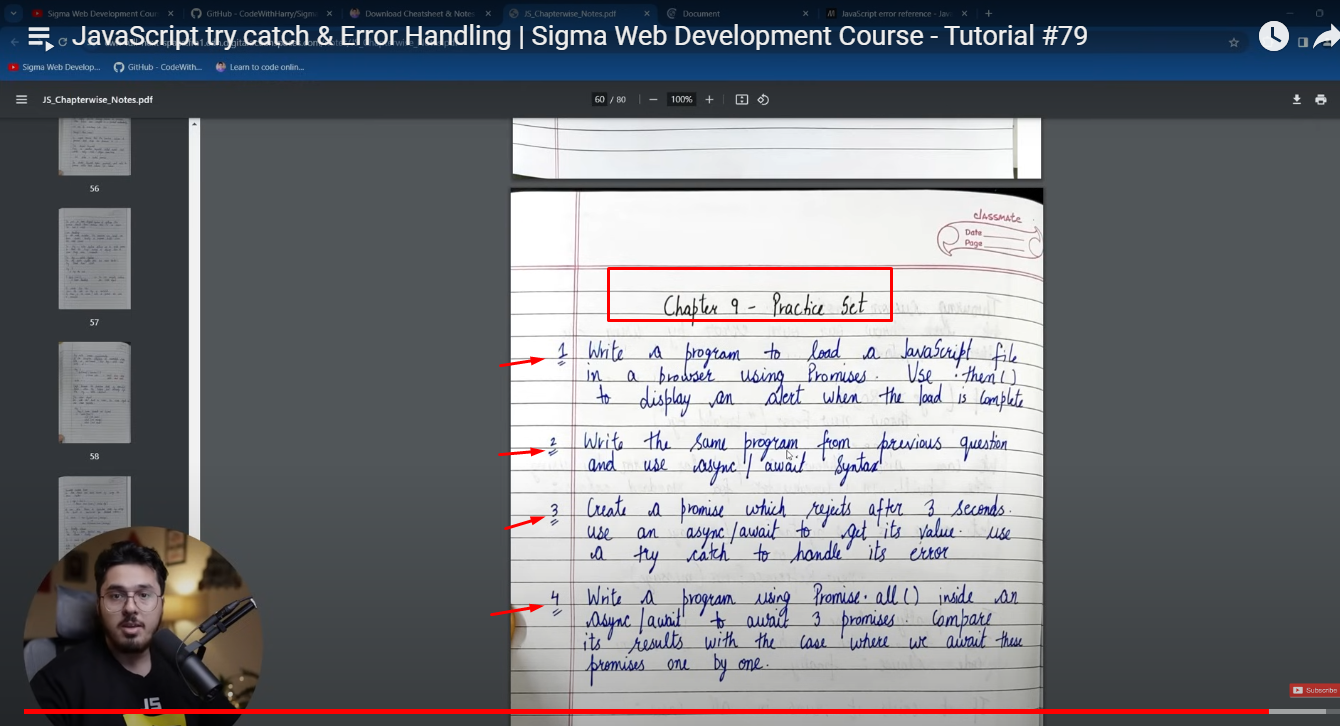 Sigma Web Development Cour
GitHub - CodeWithHarry/Sigm
Download Cheatsheet & Notes
JS_Chapterwise_Notes.pdf
Document
JavaScript error reference - Jav
JavaScript try catch & Error Handling | Sigma Web Development Course - Tutorial #79
Sigma Web Develop...
GitHub - CodeWith...
Learn to code onlin...
JS_Chapterwise_Notes.pdf
60 / 80
100%
56
57
58
classmate
Date
Page
Chapter 9 - Practice Set
1 Write a program to load a JavaScript file
in a browser using Promises. Use .then()
to display an alert when the load is complete
2 Write the same program from previous question
and use async/await syntax
3 Create a promise which rejects after 3 seconds.
use an async/await to get its value. use
a try catch to handle its error
4 Write a program using Promise.all() inside an
async/await to await 3 promises. Compare
its results with the case where we await these
promises one by one.
JS
Subscribe